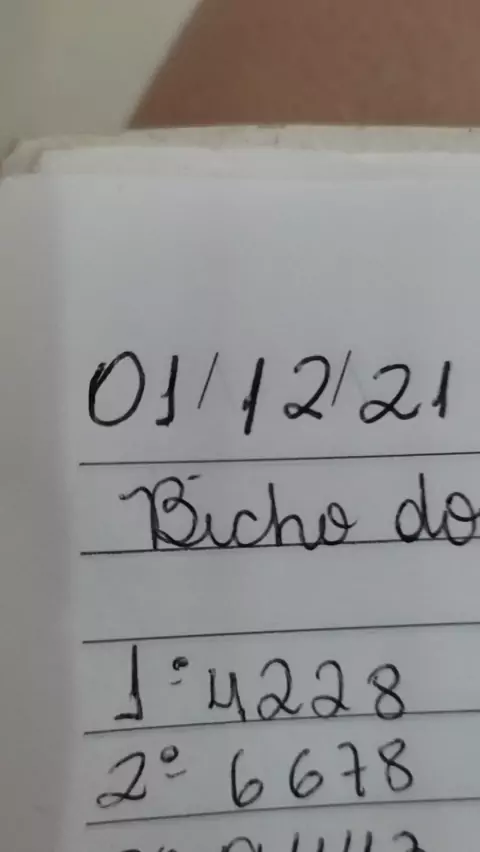 01/12/21
Bicho do
1º 4228
2º 6678